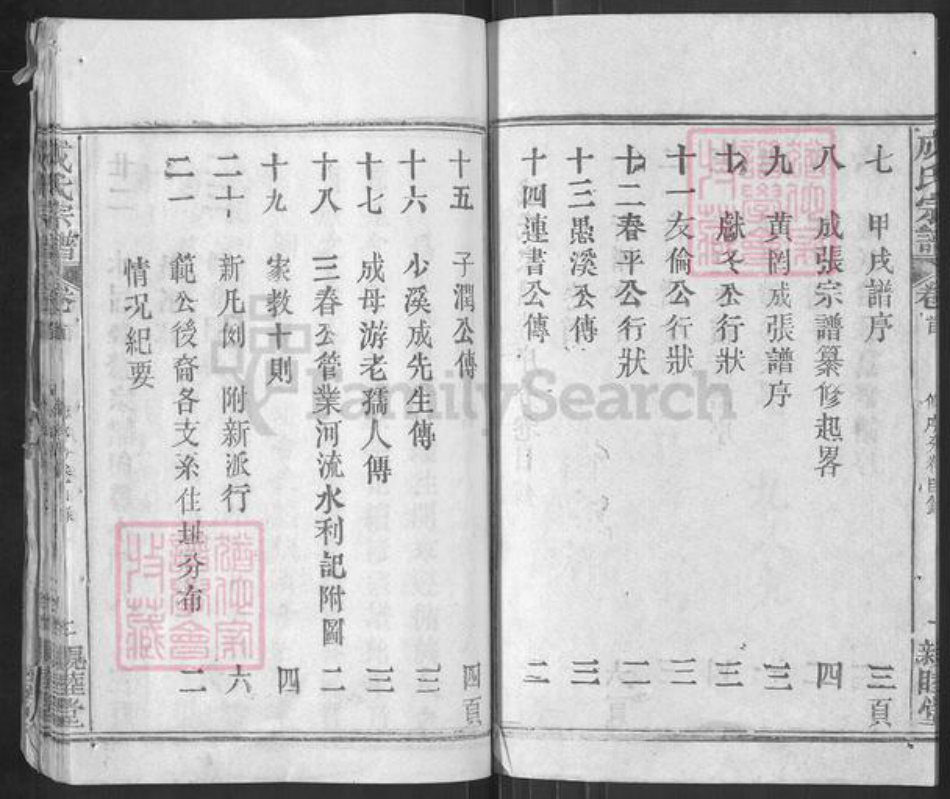 成氏宗譜 卷首
七 甲戌譜序 三頁
八 成張宗譜纂修起畧 四
九 黄岡成張譜序 三
十 獻冬公行狀 三
十一 友倫公行狀 三
十二 春平公行狀 二
十三 愚溪公傳 三
十四 連書公傳 二
十五 子潤公傳 四頁
十六 少溪成先生傳 三
十七 成母游老孺人傳 三
十八 三春公管業河流水利記附圖 二
十九 家教十則 四
二十 新凡例 附新派行 六
二一 範公後裔各支系住址分布 二
情况紀要
成氏宗譜 卷首
親睦堂
FamilySearch